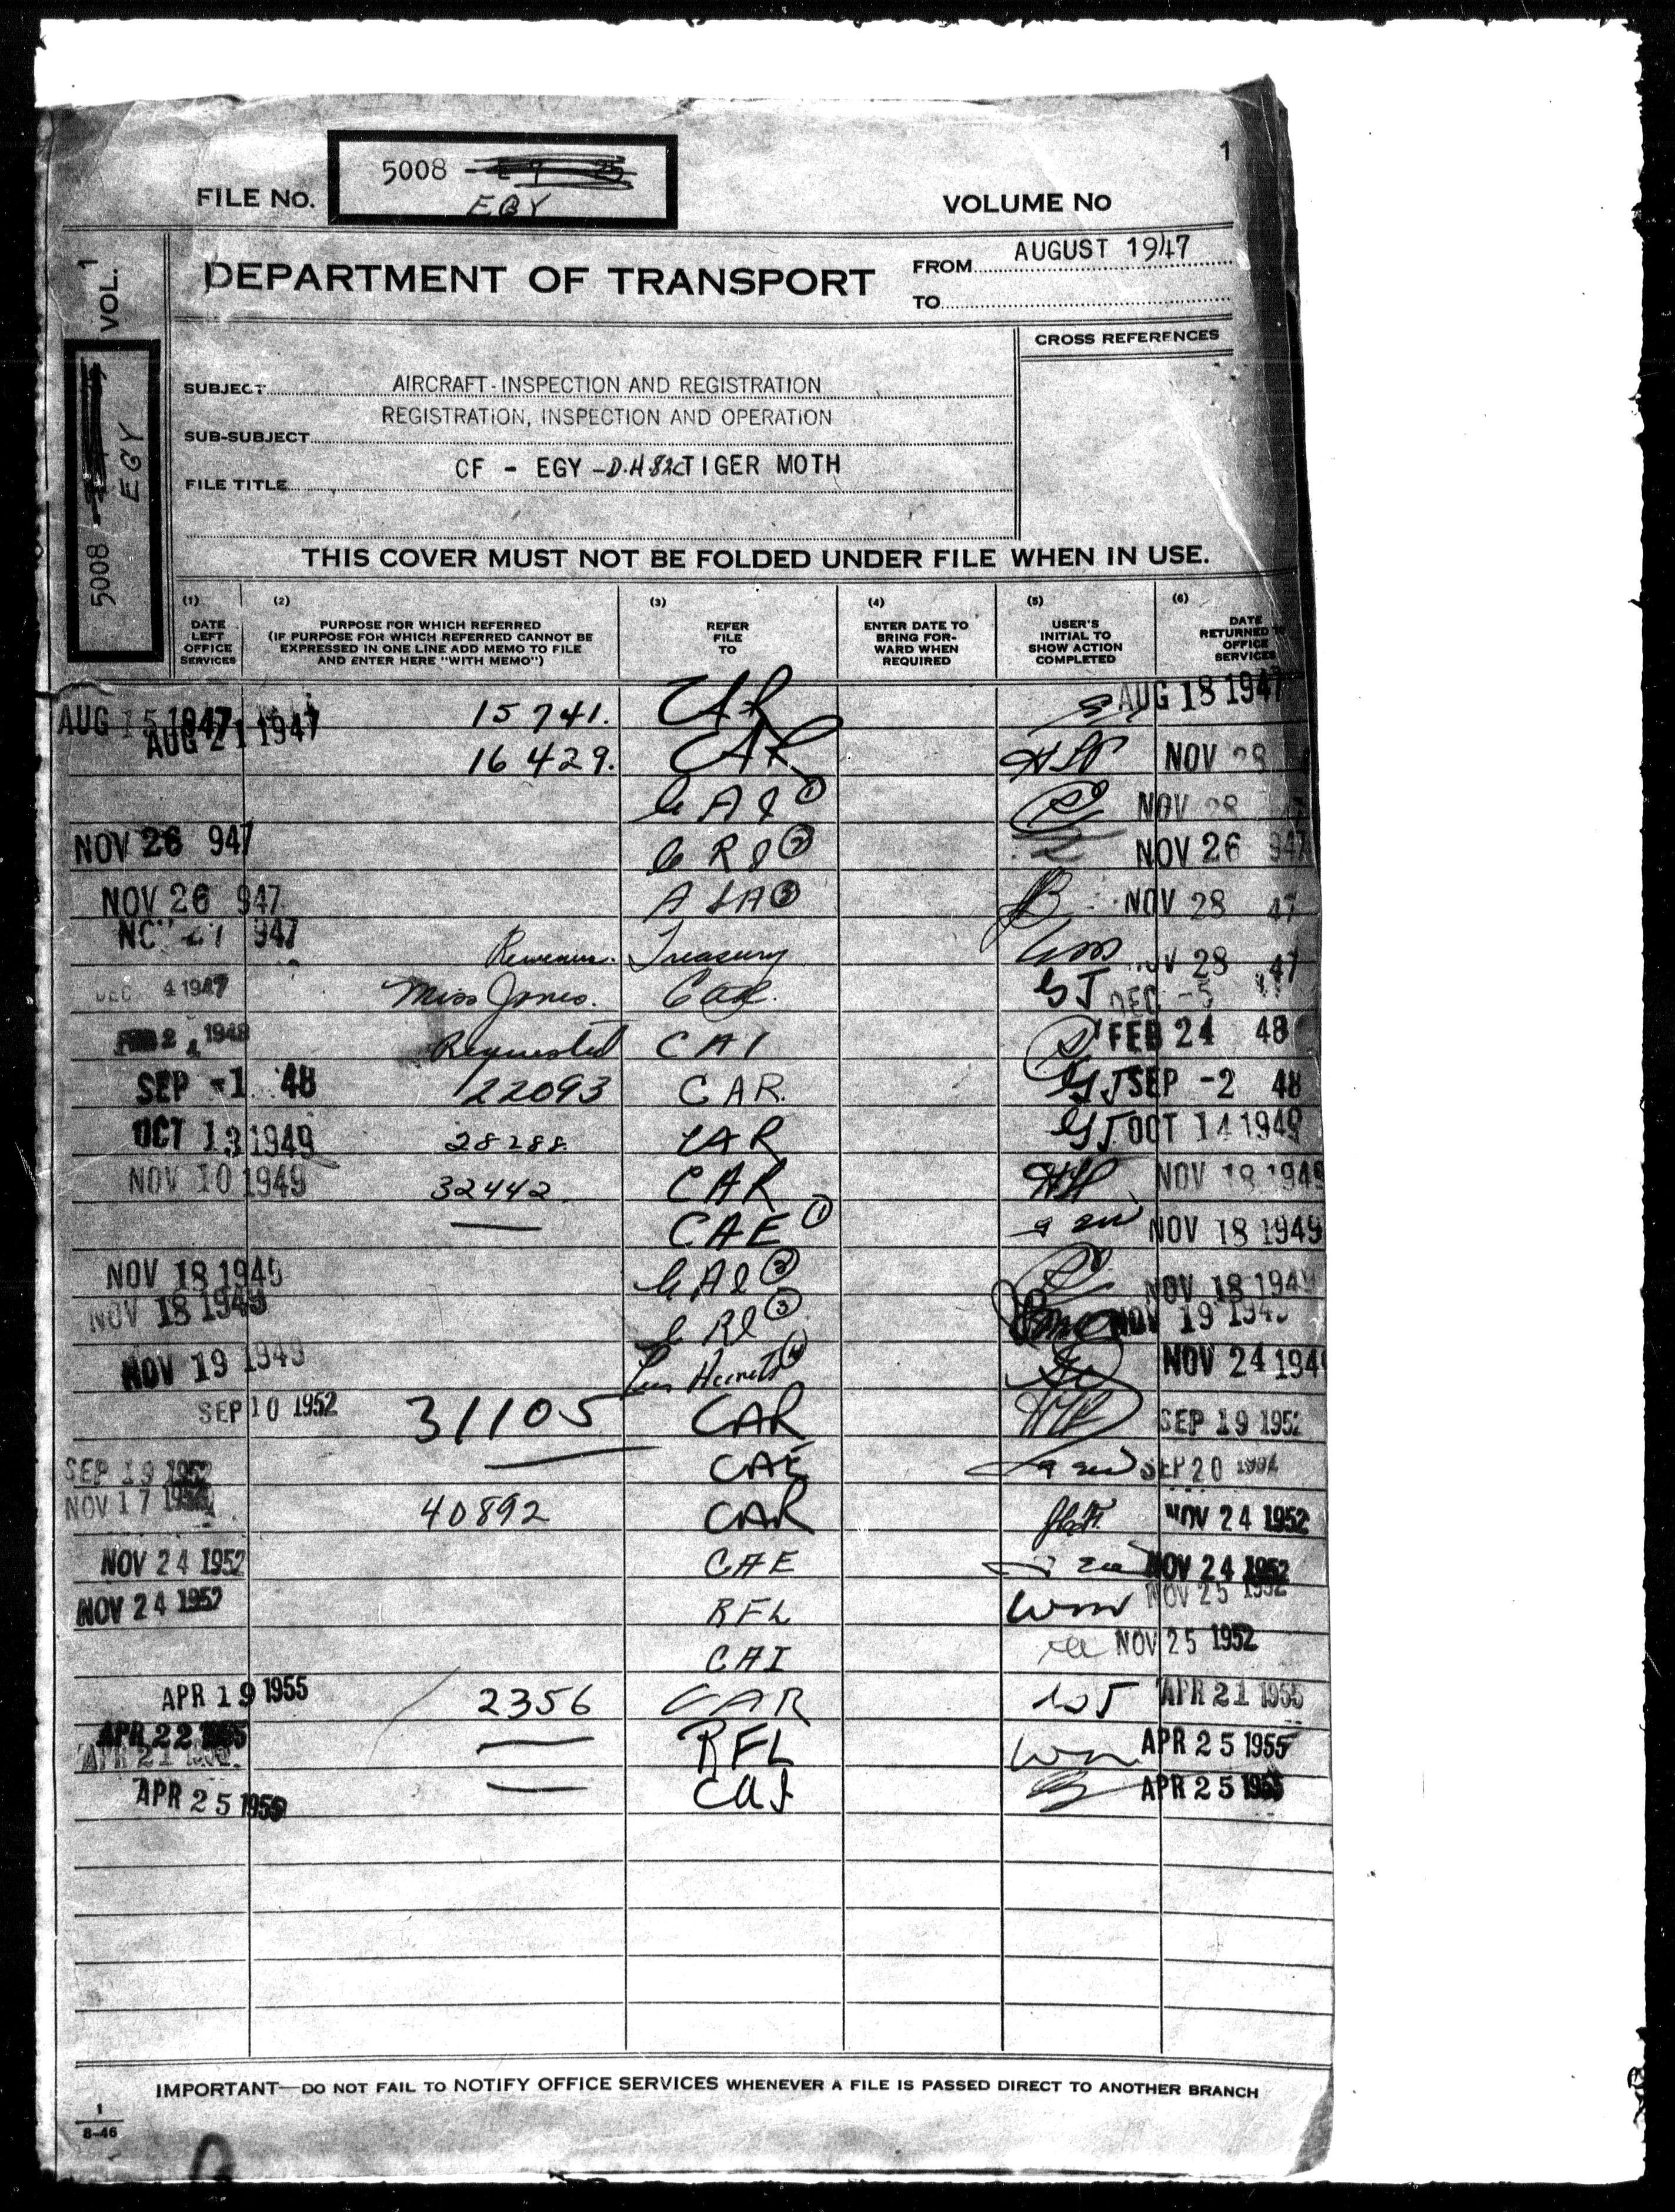 1
FILE NO. 5008
EGY
VOLUME NO
VOL. 1
5008
EGY
DEPARTMENT OF TRANSPORT
FROM AUGUST 1947
TO
CROSS REFERENCES
SUBJECT AIRCRAFT - INSPECTION AND REGISTRATION
REGISTRATION, INSPECTION AND OPERATION
SUB-SUBJECT
FILE TITLE CF - EGY - D.H.82C TIGER MOTH
THIS COVER MUST NOT BE FOLDED UNDER FILE WHEN IN USE.
(1) (2) (3) (4) (5) (6)
DATE LEFT OFFICE SERVICES
PURPOSE FOR WHICH REFERRED
(IF PURPOSE FOR WHICH REFERRED CANNOT BE
EXPRESSED IN ONE LINE ADD MEMO TO FILE
AND ENTER HERE "WITH MEMO")
REFER FILE TO
ENTER DATE TO BRING FOR-WARD WHEN REQUIRED
USER'S INITIAL TO SHOW ACTION COMPLETED
DATE RETURNED TO OFFICE SERVICES
AUG 15 1947 15741. CAR AUG 18 1947
AUG 21 1947 16429. CAR NOV 28
CAI ① NOV 28 47
NOV 26 947 CRI ② NOV 26 947
NOV 26 947 ALA ③ NOV 28 47
947 Revenue. Treasury NOV 28 47
DEC 4 1947 Miss Jones. CAR. GJ DEC -5
1948 Requested CAI FEB 24 48
SEP -1 48 22093 CAR. GJ SEP -2 48
OCT 13 1949 28288. CAR GJ OCT 14 1949
NOV 10 1949 32442 CAR NOV 18 1949
— CAE ① NOV 18 1949
NOV 18 1949 CAI ② NOV 18 1949
NOV 18 1949 CRI ③ NOV 19 1949
NOV 19 1949 NOV 24 194
SEP 10 1952 31105 CAR SEP 19 1952
SEP 19 1952 — CAE SEP 20 1952
NOV 17 1952 40892 CAR NOV 24 1952
NOV 24 1952 CAE NOV 24 1952
NOV 24 1952 RFL NOV 25 1952
CAI NOV 25 1952
APR 19 1955 2356 CAR APR 21 1955
APR 22 1955 — RFL APR 25 1955
APR 21
APR 25 1955 — CAI APR 25 1955
IMPORTANT—DO NOT FAIL TO NOTIFY OFFICE SERVICES WHENEVER A FILE IS PASSED DIRECT TO ANOTHER BRANCH
1
8-46